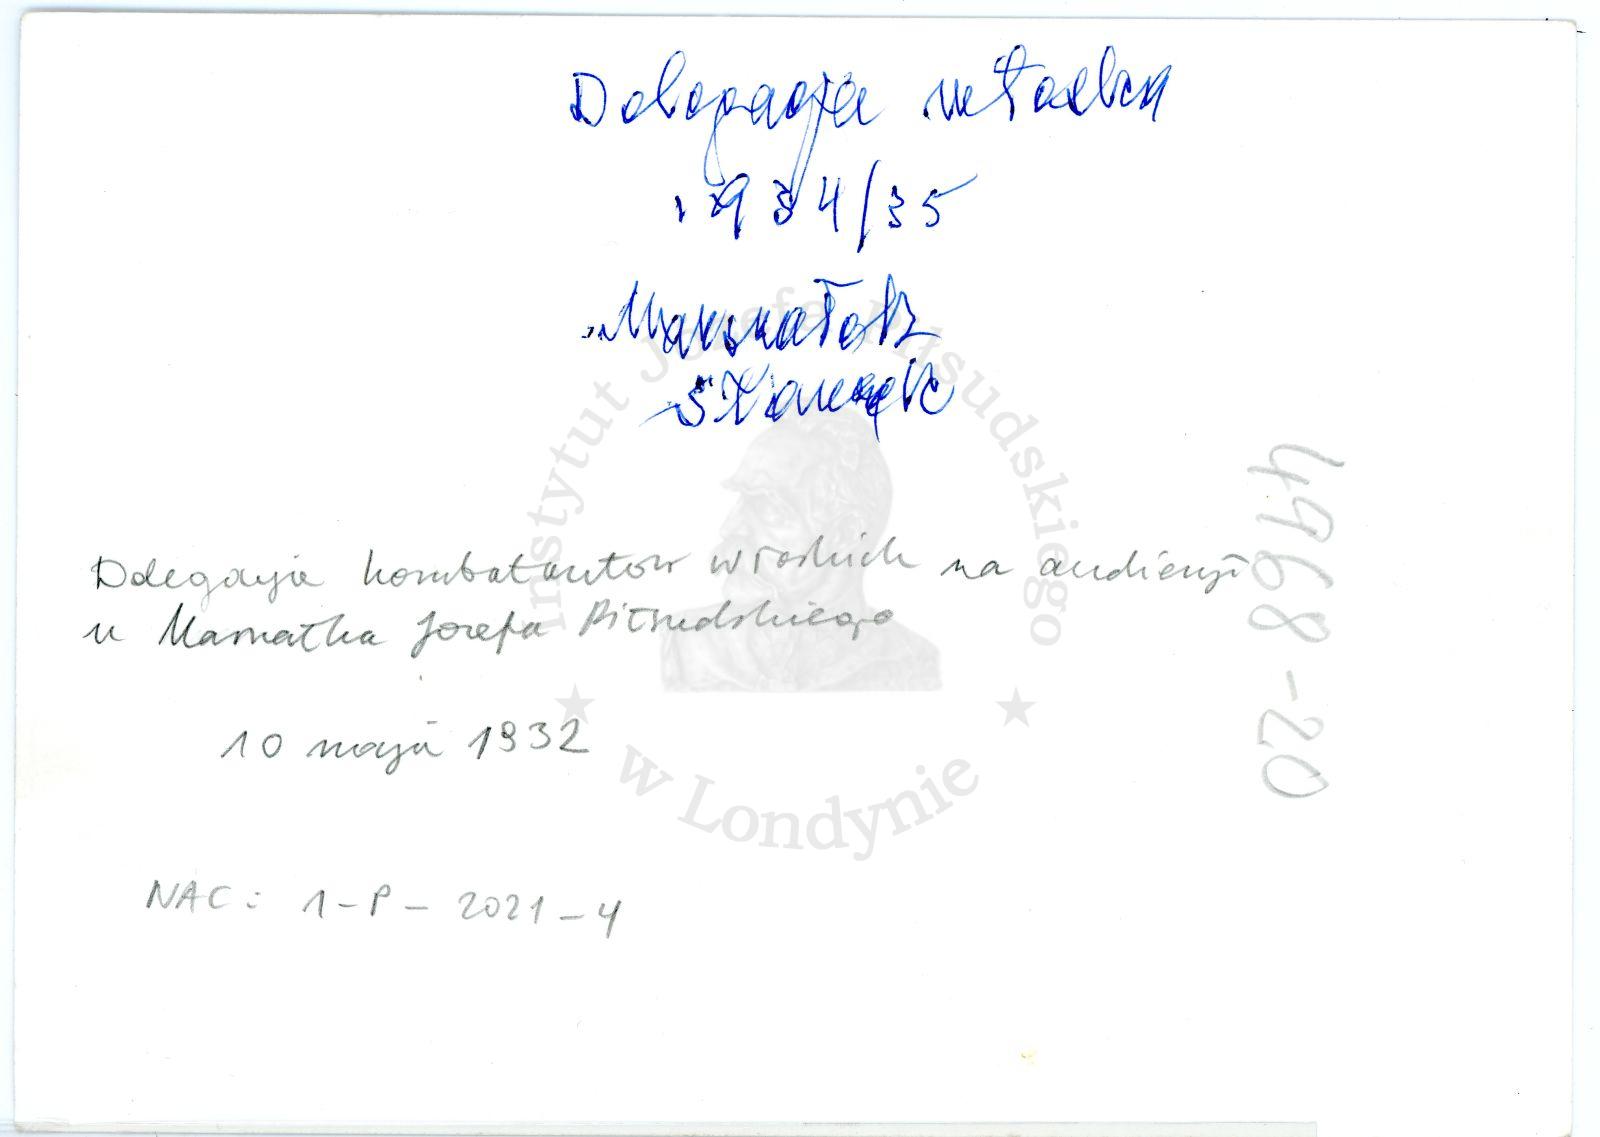 Delegacja włoska
1934/35
Marszałek
Delegacja kombatantów włoskich na audiencji
u Marszałka Józefa Piłsudskiego
10 maja 1932
NAC: 1-P-2021-4
4968-20
Instytut Józefa Piłsudskiego
w Londynie